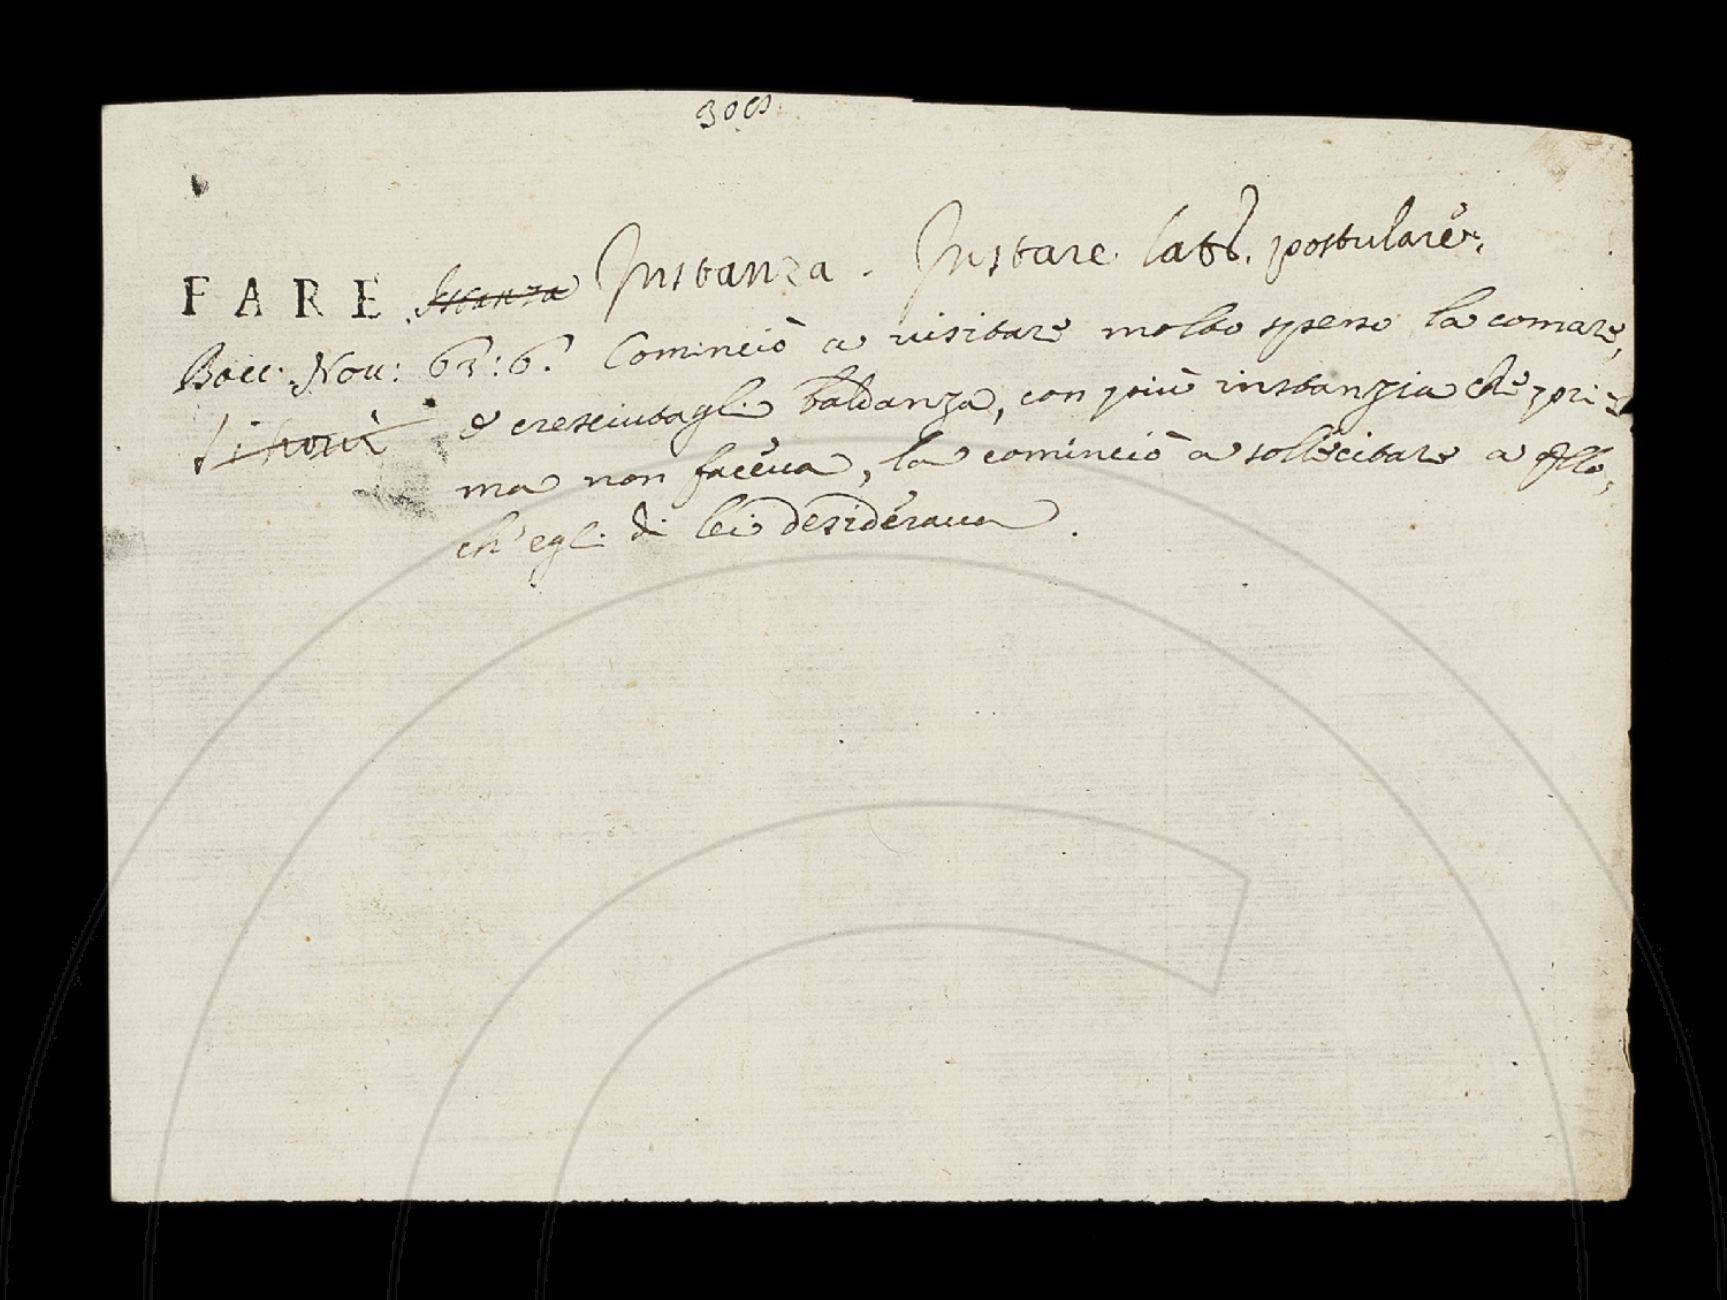 FARE Istanza Instanza. Instare latt. postulare.
Bocc. Nou: 63:6. Cominciò a uisitare molto spesso la comare,
e cresciutagli baldanza, con più instanzia che pri-
ma non faceua, la cominciò a sollecitare a q̃llo,
ch'egli di lei desideraua.